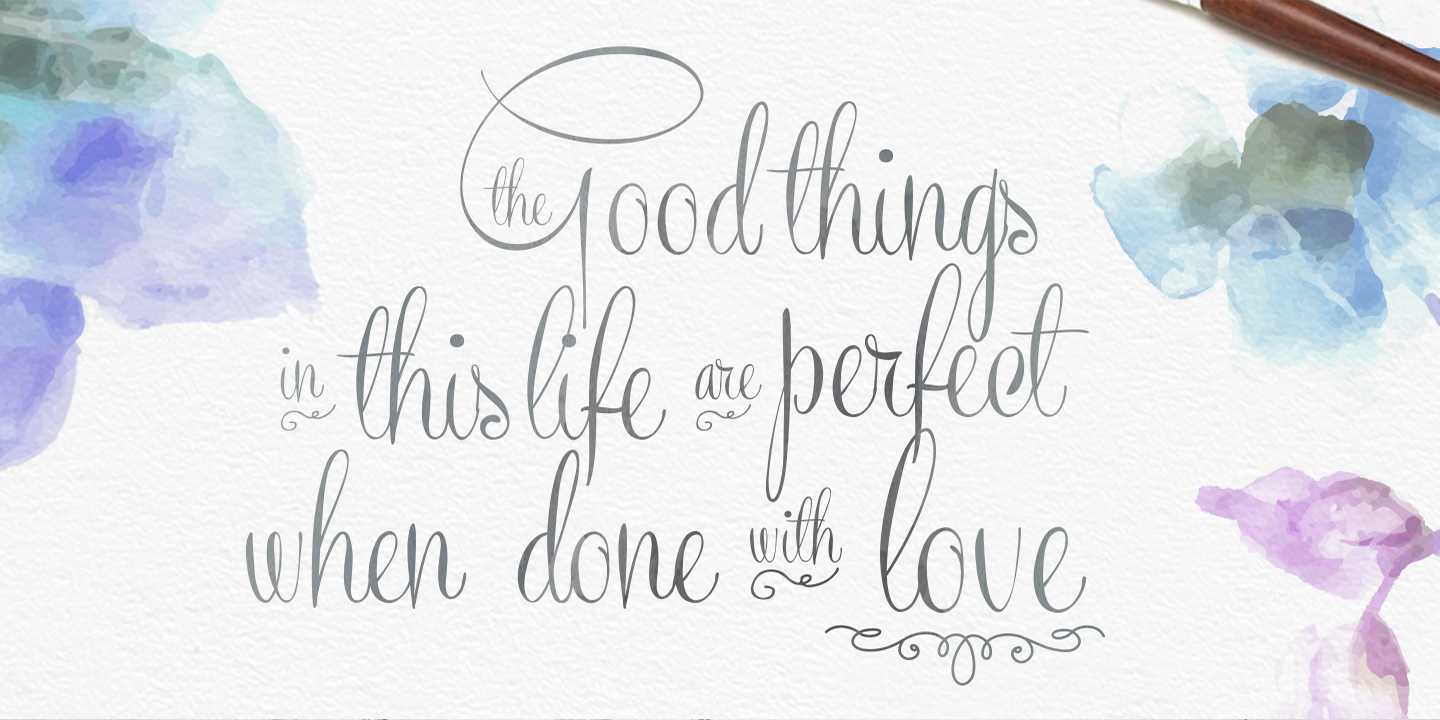 the Good things
in this life are perfect
when done with love